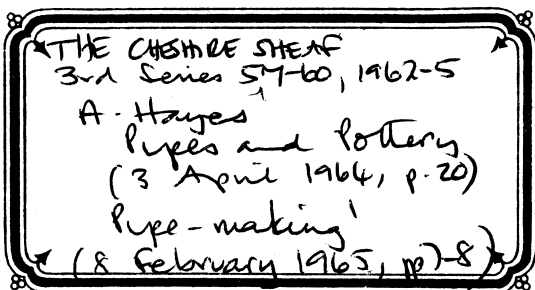 THE CHESHIRE SHEAF
3rd Series 57-60, 1962-5
A. Hayes
Pipes and Pottery
(3 April 1964, p. 20)
Pipe-making'
(8 February 1965, pp7-8)